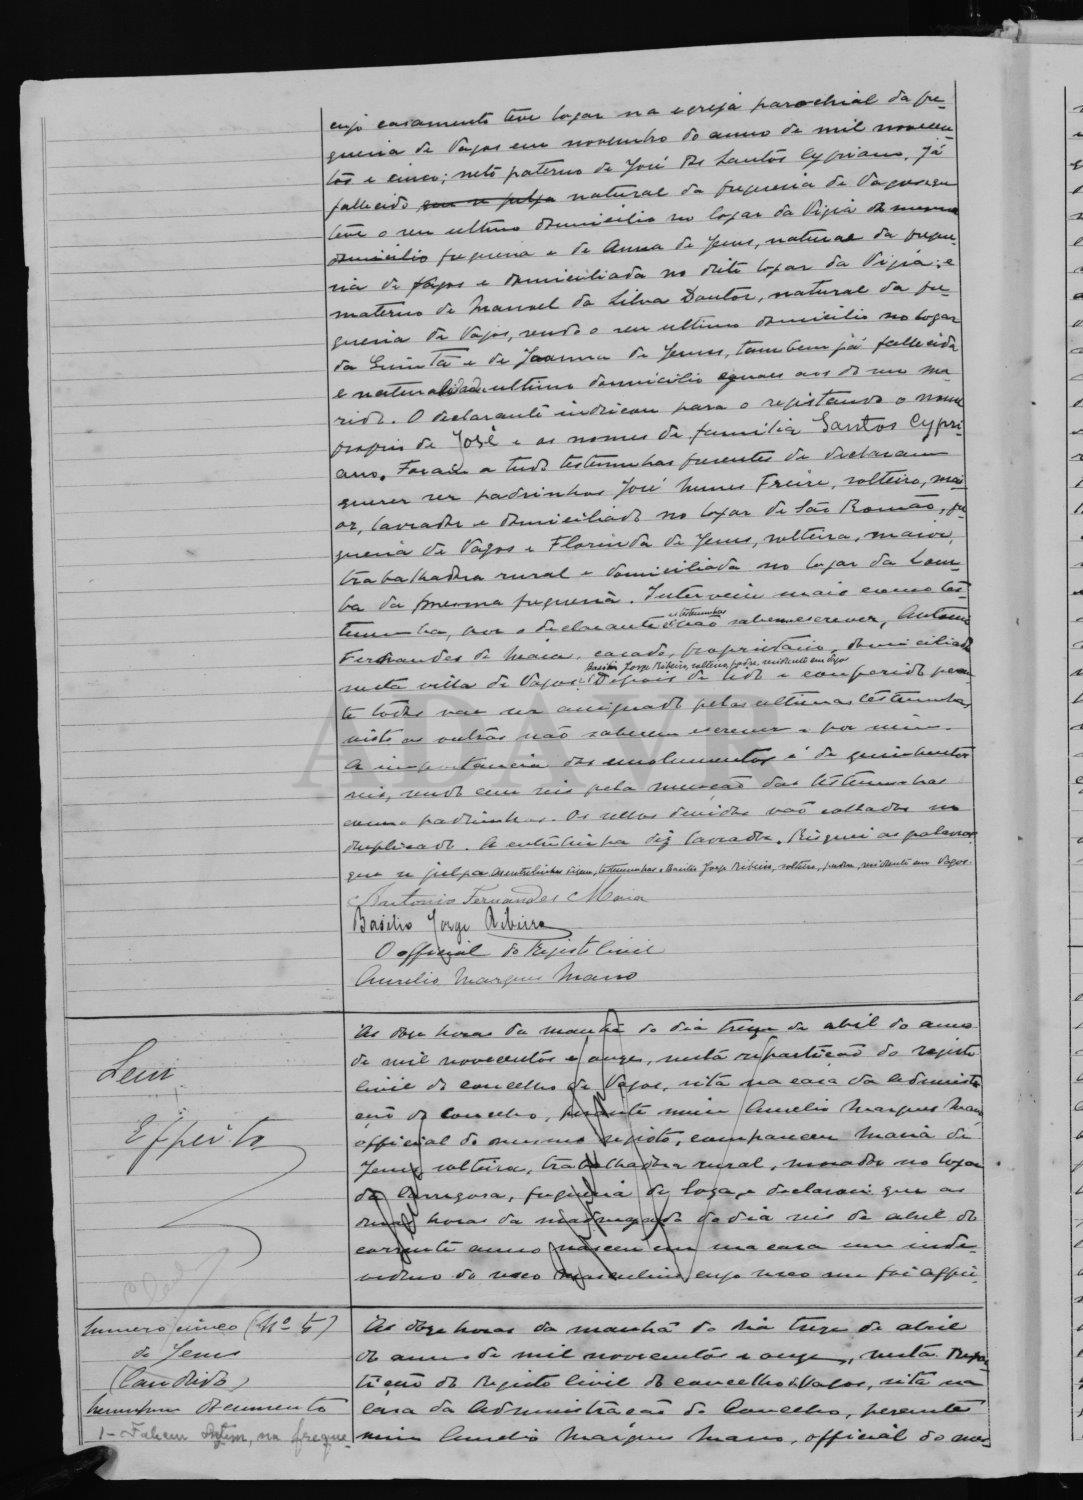 cujo casamento teve logar na egreja parochial da fre-
guesia de Vagos em novembro do anno de mil novecen
tos e cinco; neto paterno de José dos Santos Cypriano, já
fallecido que se julga natural da freguesia de Vagos que
teve o seu ultimo domicilio no logar da Vigia da mesma
domicilio freguesia e de Anna de Jesus, natural da fregue-
sia de Vagos e domiciliada no dito logar da Vigia; e
materno de Manoel da Silva Doutor, natural da fre-
guesia de Vagos, sendo o seu ultimo domicilio no logar
da Quintã e de Joanna de Jesus, tambem já fallecida
e naturalidade ultimo domicilio eguaes aos do seu ma-
rido. O declarante indicou para o registando o nome
proprio de José e os nomes de familia Santos Cypri-
ano. Foram a tudo testemunhas presentes de declararam
querer ser padrinhos José Nunes Freire, solteiro, mai-
or, lavrador e domiciliado no logar de São Romão, fre-
guesia de Vagos e Florinda de Jesus, solteira, maior,
trabalhadora rural e domiciliada no logar da Lom-
ba da mesma freguesia. Interveiu mais como tes-
temunha, por o declarante e testemunhas não saberem escrever, Antonio
Fernandes de Maia, casado, proprietario, domiciliado
nesta villa de Vagos e Basilio Jorge Ribeiro, solteiro, padre, residente em Vagos. Depois de lido e conferido peran-
te todos vae ser assignado pelas ultimas testemunhas
visto os outros não saberem escrever e por mim.
A importancia dos emolumentos é de quinhentos
reis, sendo cem reis pela menção das testemunhas
como padrinhos. Os sellos devidos vão collados no
duplicado. A entrelinha diz lavrador. Risquei as palavras
que se julga As entrelinhas dizem, testemunhas e Basilio Jorge Ribeiro, solteiro, padre, residente em Vagos.
Antonio Fernandes Maia
Basilio Jorge Ribeiro
O official do Registo Civil
Aurelio Marques Mano
Sem
Effeito
Ás onze horas da manhã do dia treze de abril do anno
de mil novecentos e onze, nesta repartição do registo
civil do concelho de Vagos, sita na casa da Administra
ção do Concelho, perante mim Aurelio Marques Mano
official do mesmo registo, compareceu Maria de
Jesus, solteira, trabalhadora rural, moradora no logar
da Carregosa, freguesia de Soza, e declarou que as
duas horas da madrugada do dia seis de abril do
corrente anno nasceu em sua casa um indi-
viduo do sexo masculino cujo sexo me foi affir-
Sem effeito
Numero cinco (Nº 5)
de Jesus
(Candido)
Nenhum documento
1 - Faleceu ontem, na fregue-
Ás onze horas da manhã do dia treze de abril
do anno de mil novecentos e onze, nesta Repar-
tição do Registo Civil do concelho de Vagos, sita na
Casa da Administração do Concelho, perante
mim Aurelio Marques Mano, official do mes-
ADAVR